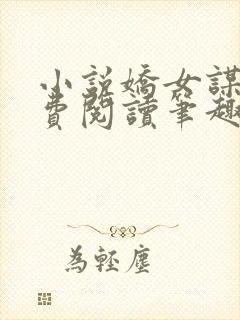 小説嬌女謀
費閱讀筆趣
為輕塵